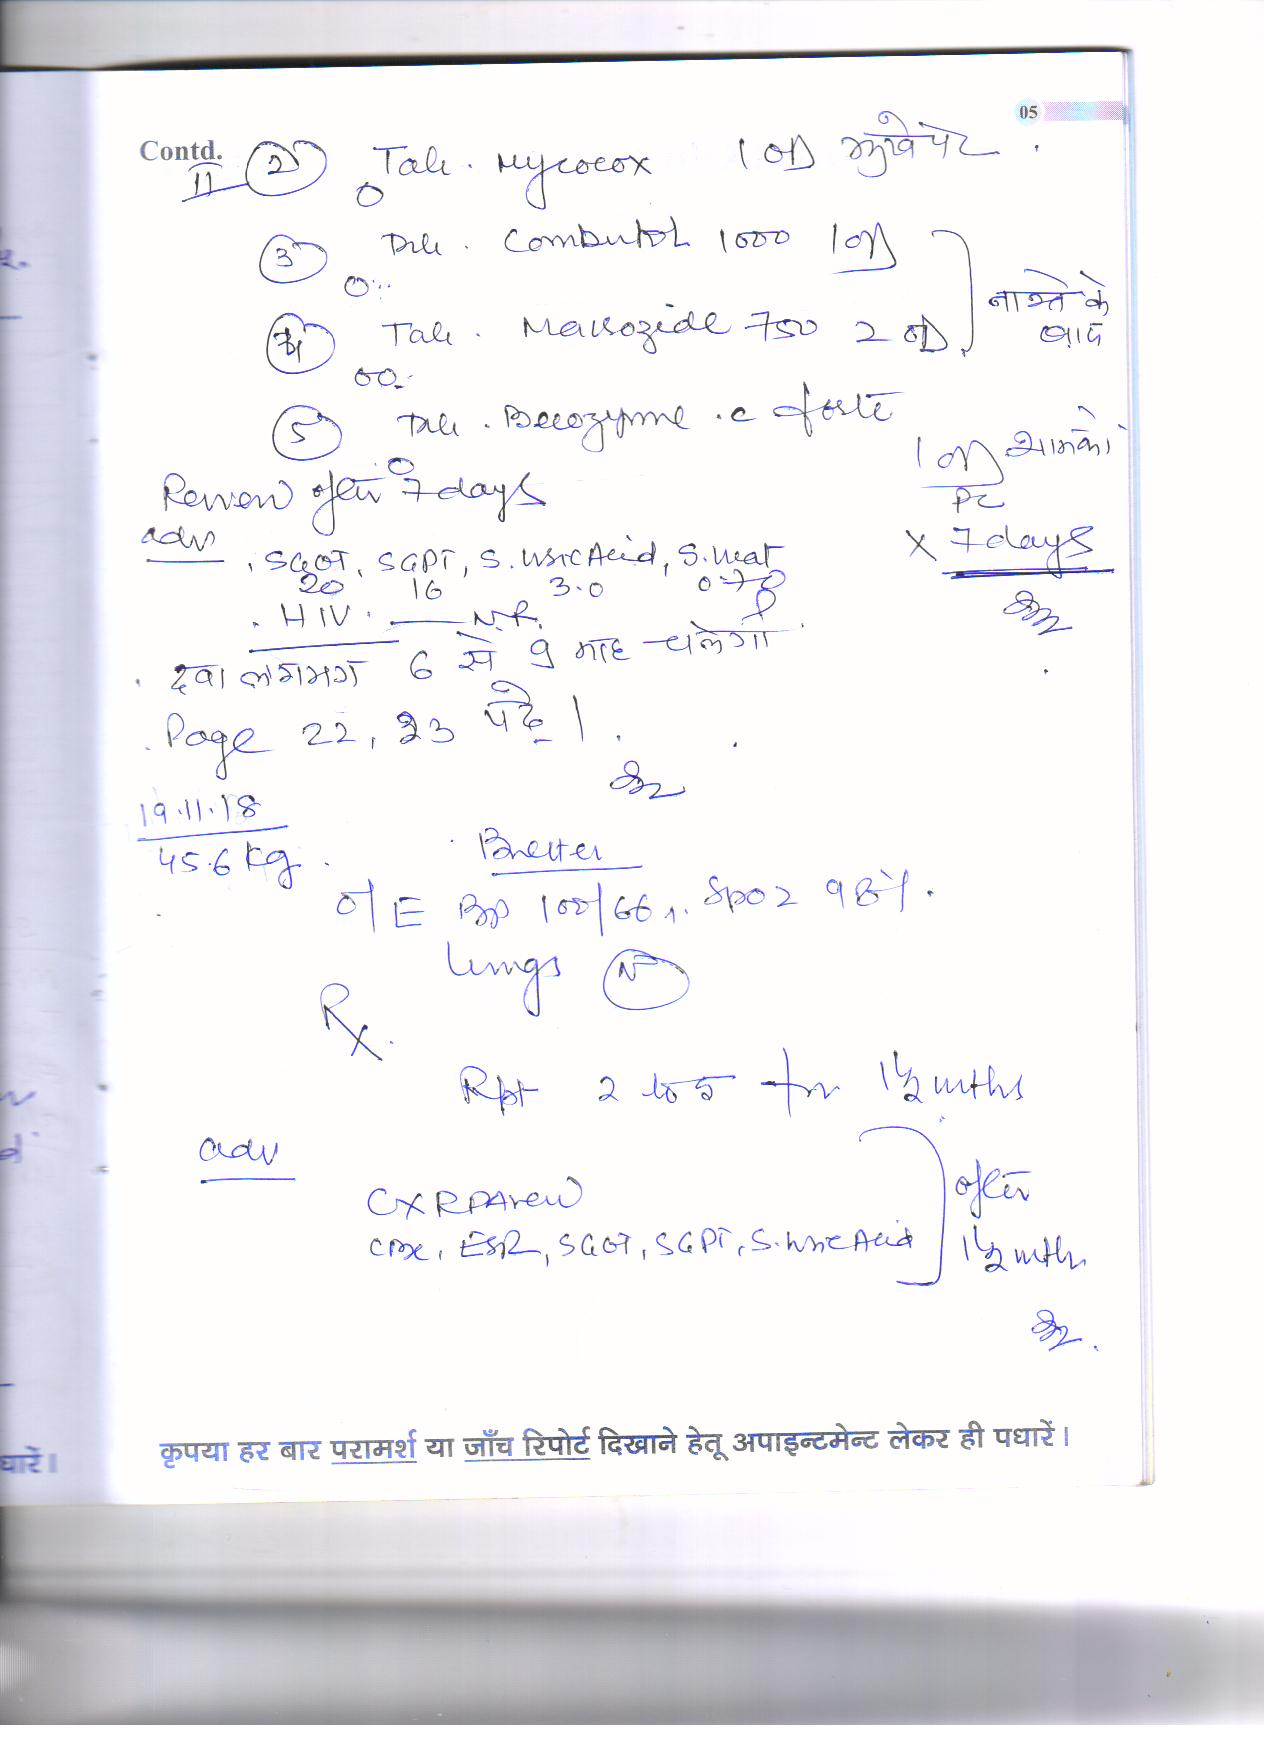 05
Contd.
II ② Tab. Mycocox 1 OD भूखे पेट
③ Tab. Combutol 1000 1 OD
④ Tab. Macrozide 750 2 OD
नाश्ते के
बाद
⑤ Tab. Becozyme.c forte
1 OD शामको
PC
Review after 7 days
x 7 days
adv
SGOT, SGPT, S. Uric Acid, S. Creat
20 16 3.0 0.78
HIV. — N.R.
दवा लगभग 6 से 9 माह चलेगी
Page 22, 23 पढ़े।
19.11.18
45.6 kg
Better
O/E BP 100/66, SpO2 98%.
Lungs N
Rx
Rpt 2 to 5 for 1½ mths
adv
CXR PA view
CBC, ESR, SGOT, SGPT, S. Uric Acid
after
1½ mth
कृपया हर बार परामर्श या जाँच रिपोर्ट दिखाने हेतू अपाइन्टमेन्ट लेकर ही पधारें।
धारें।